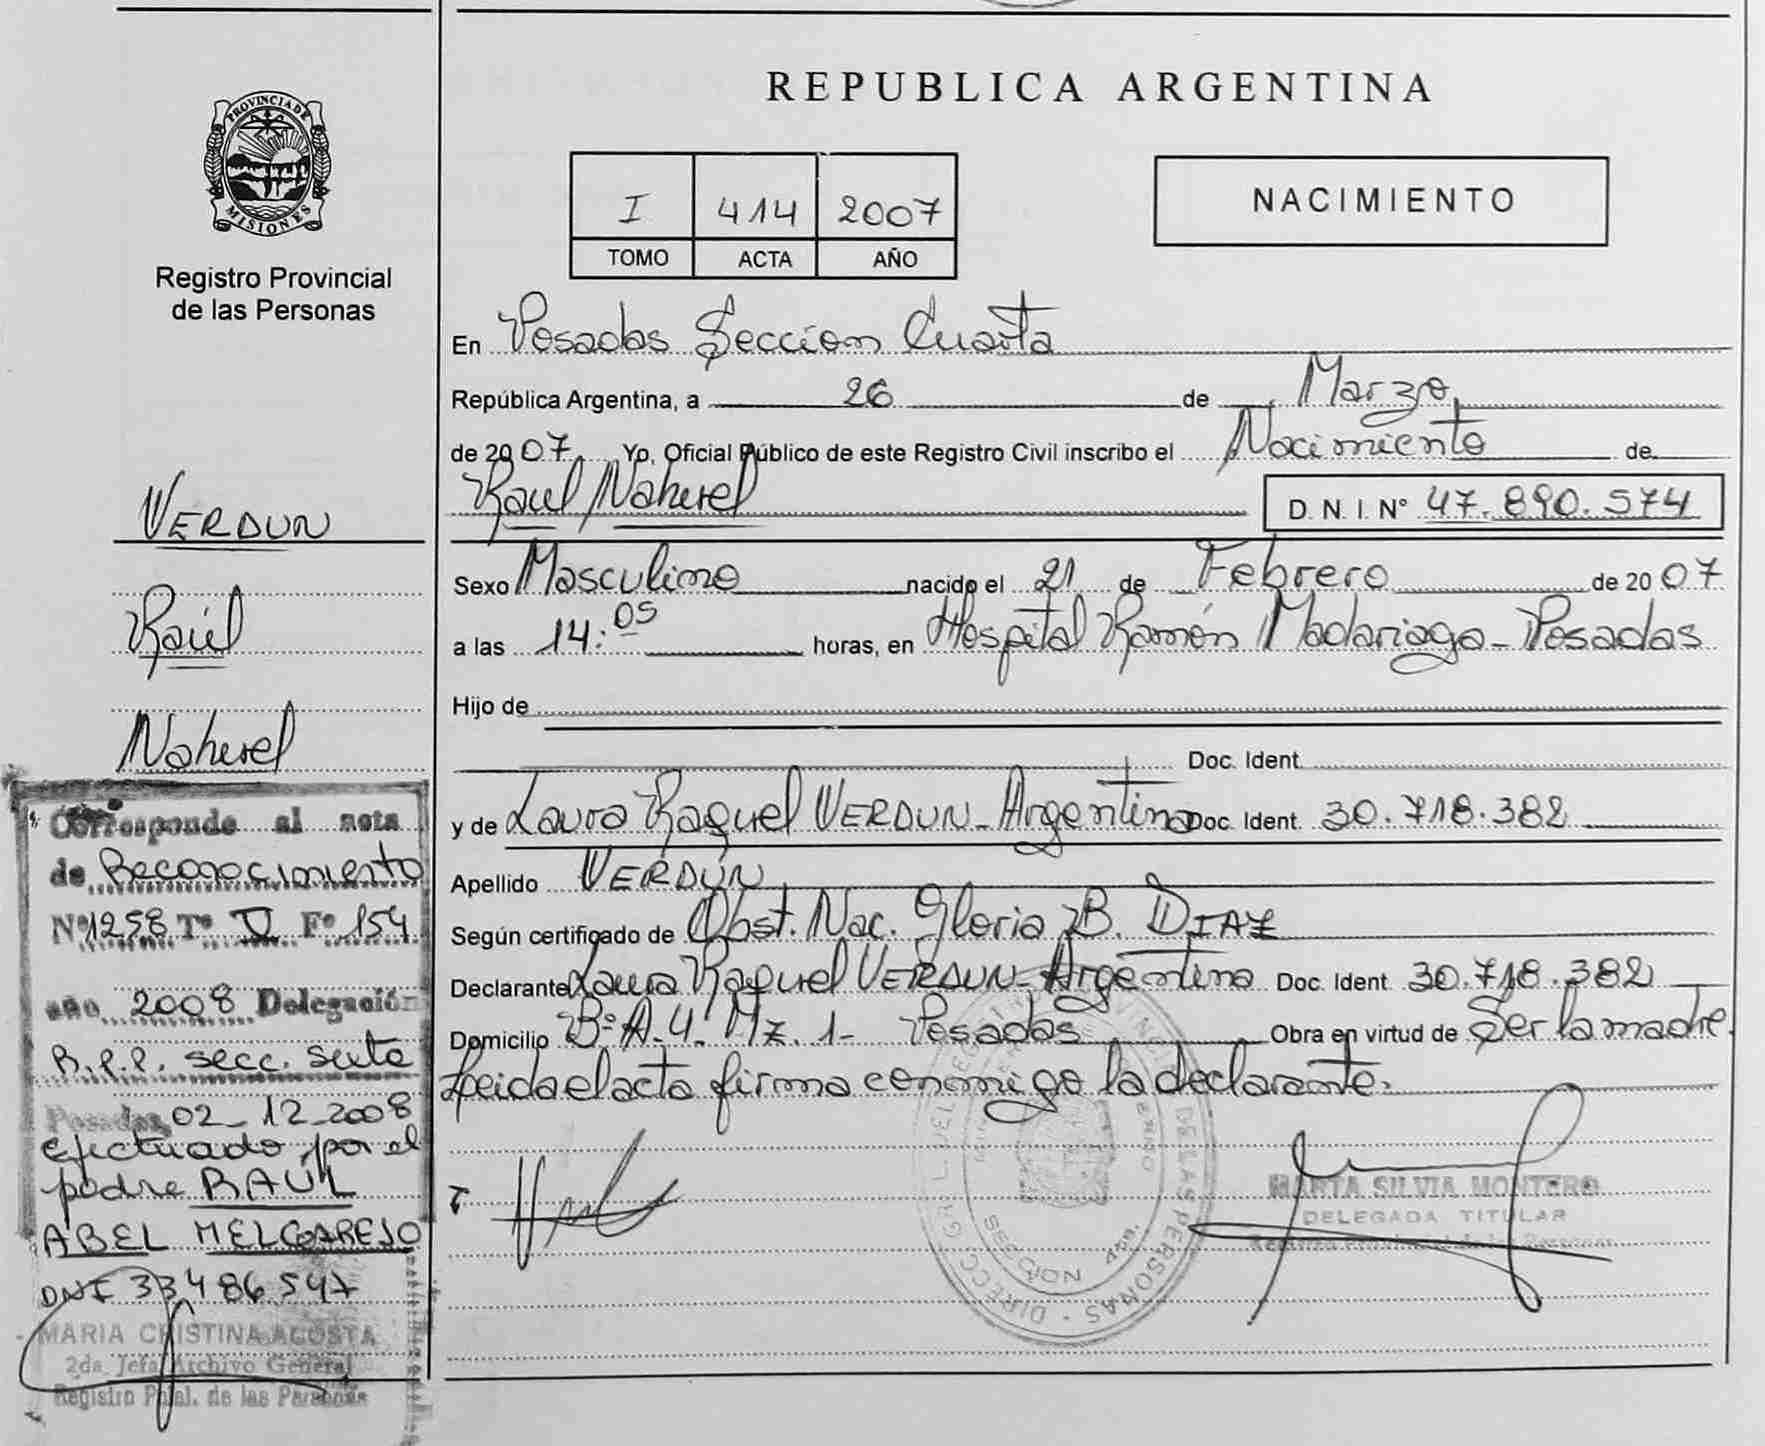 PROVINCIA DE
MISIONES
Registro Provincial
de las Personas
VERDUN
Raúl
Nahuel
Corresponde al acta
de Reconocimiento
Nº 1258 Tº V Fº 154
año 2008 Delegación
R.P.P. secc. sexta
Posadas, 02-12-2008
efectuado por el
padre RAÚL
ABEL MELGAREJO
DNI 33486547
MARIA CRISTINA ACOSTA
2da Jefa Archivo General
Registro Pcial. de las Personas
REPUBLICA ARGENTINA
I 414 2007
TOMO ACTA AÑO
NACIMIENTO
En Posadas Seccion Cuarta
República Argentina, a 26 de Marzo
de 2007 Yo, Oficial Público de este Registro Civil inscribo el Nacimiento de
Raul Nahuel D.N.I. Nº 47.890.574
Sexo Masculino nacido el 21 de Febrero de 2007
a las 14:05 horas, en Hospital Ramón Madariaga - Posadas
Hijo de
Doc. Ident.
y de Laura Raquel VERDUN - Argentina Doc. Ident. 30.718.382
Apellido VERDÚN
Según certificado de Obst. Nac. Gloria B. DIAZ
Declarante Laura Raquel VERDUN - Argentina Doc. Ident. 30.718.382
Domicilio Bº A-4. Mz. 1- Posadas Obra en virtud de Ser la madre.
Leida el acta firma conmigo la declarante.
MARTA SILVIA MONTERO
DELEGADA TITULAR
Registro Provincial de las Personas
DE LAS PERSONAS
SECCION 4ta.